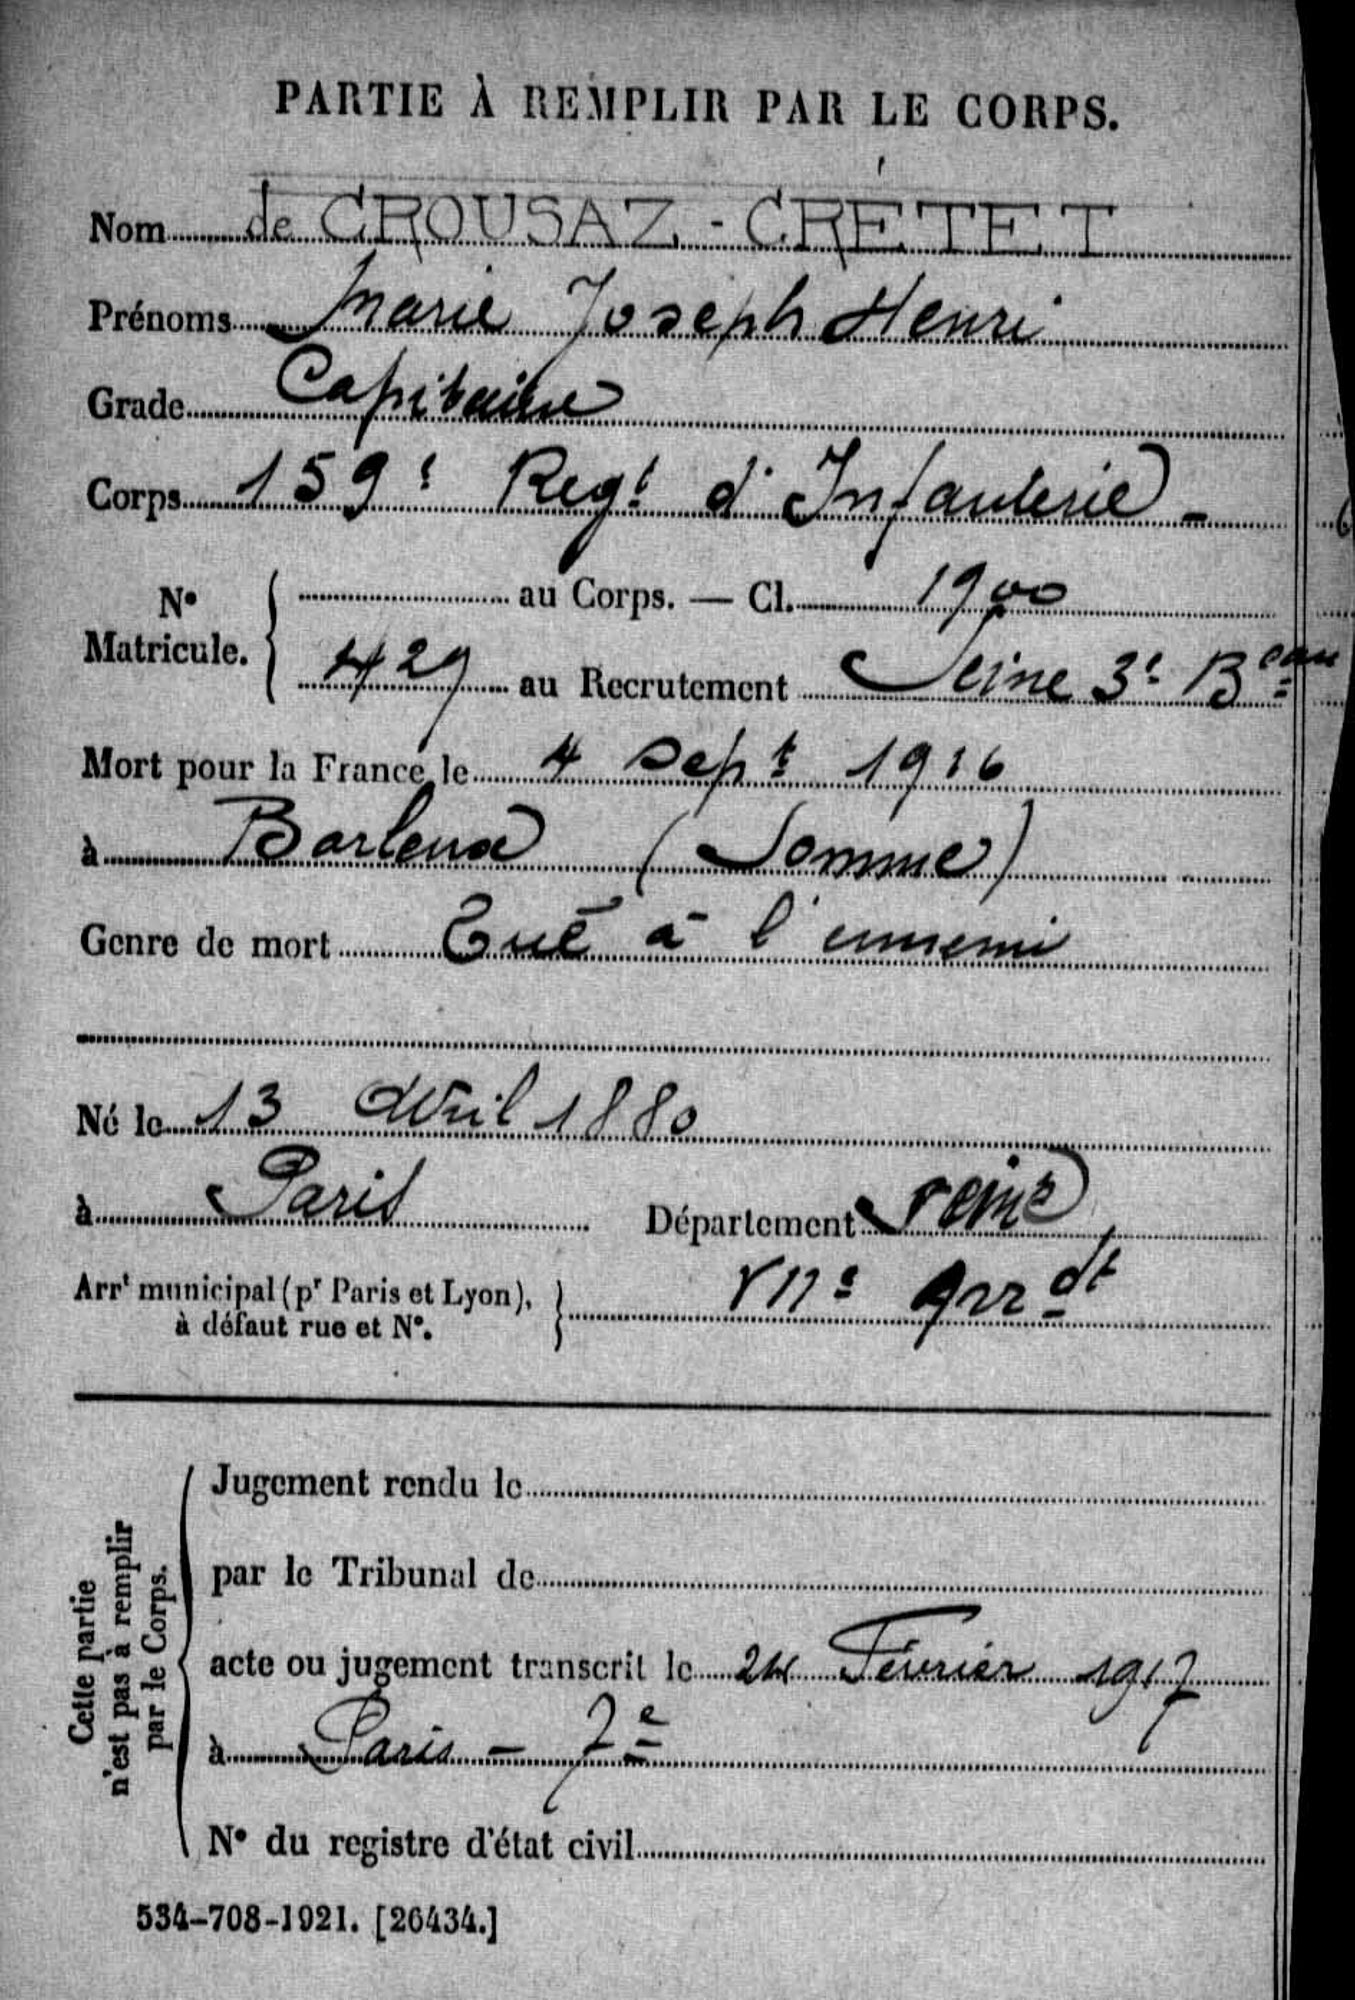 PARTIE À REMPLIR PAR LE CORPS.
Nom de CROUSAZ - CRÉTET
Prénoms Marie Joseph Henri
Grade Capitaine
Corps 159e Regt d'Infanterie -
N° Matricule. { au Corps. — Cl. 1900
429 au Recrutement Seine 3e Beau
Mort pour la France le 4 Sept 1916
à Barleux (Somme)
Genre de mort Tué à l'ennemi
Né le 13 Avril 1880
à Paris Département Seine
Arrt municipal (pr Paris et Lyon), à défaut rue et N°. } VIIe Arrdt
Cette partie n'est pas à remplir par le Corps.
Jugement rendu le
par le Tribunal de
acte ou jugement transcrit le 24 Février 1917
à Paris - 7e
N° du registre d'état civil
534-708-1921. [26434.]